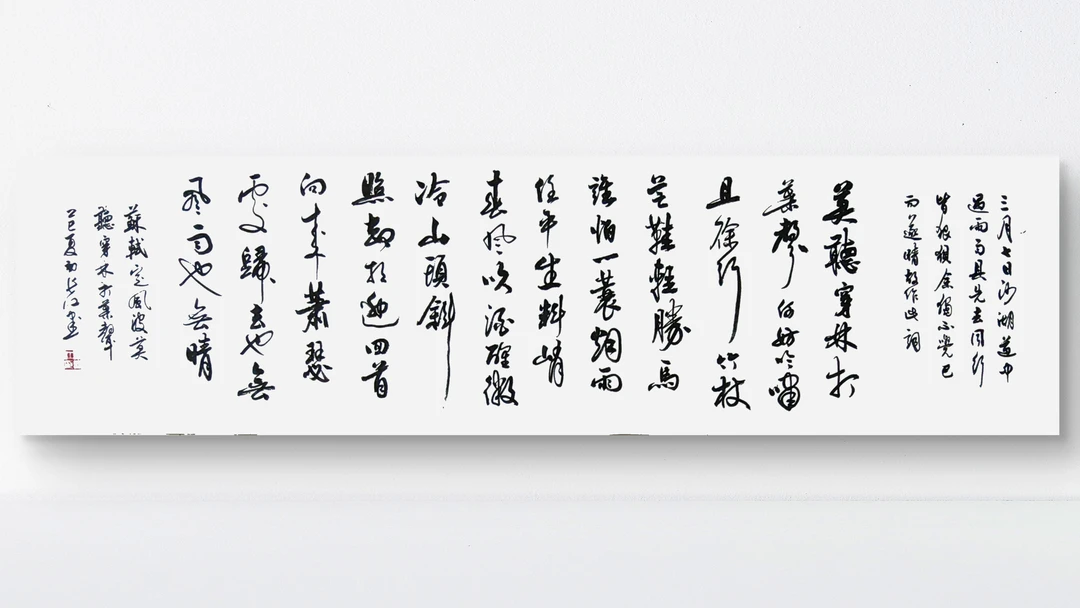 三月七日沙湖道中
遇雨雨具先去同行
皆狼狽余獨不覺已
而遂晴故作此詞
莫聽穿林打
葉聲何妨吟嘯
且徐行竹杖
芒鞋輕勝馬
誰怕一蓑烟雨
任平生料峭
春風吹酒醒微
冷山頭斜
照却相迎回首
向來蕭瑟
處歸去也無
風雨也無晴
蘇軾定風波莫
聽穿林打葉聲
乙巳夏初